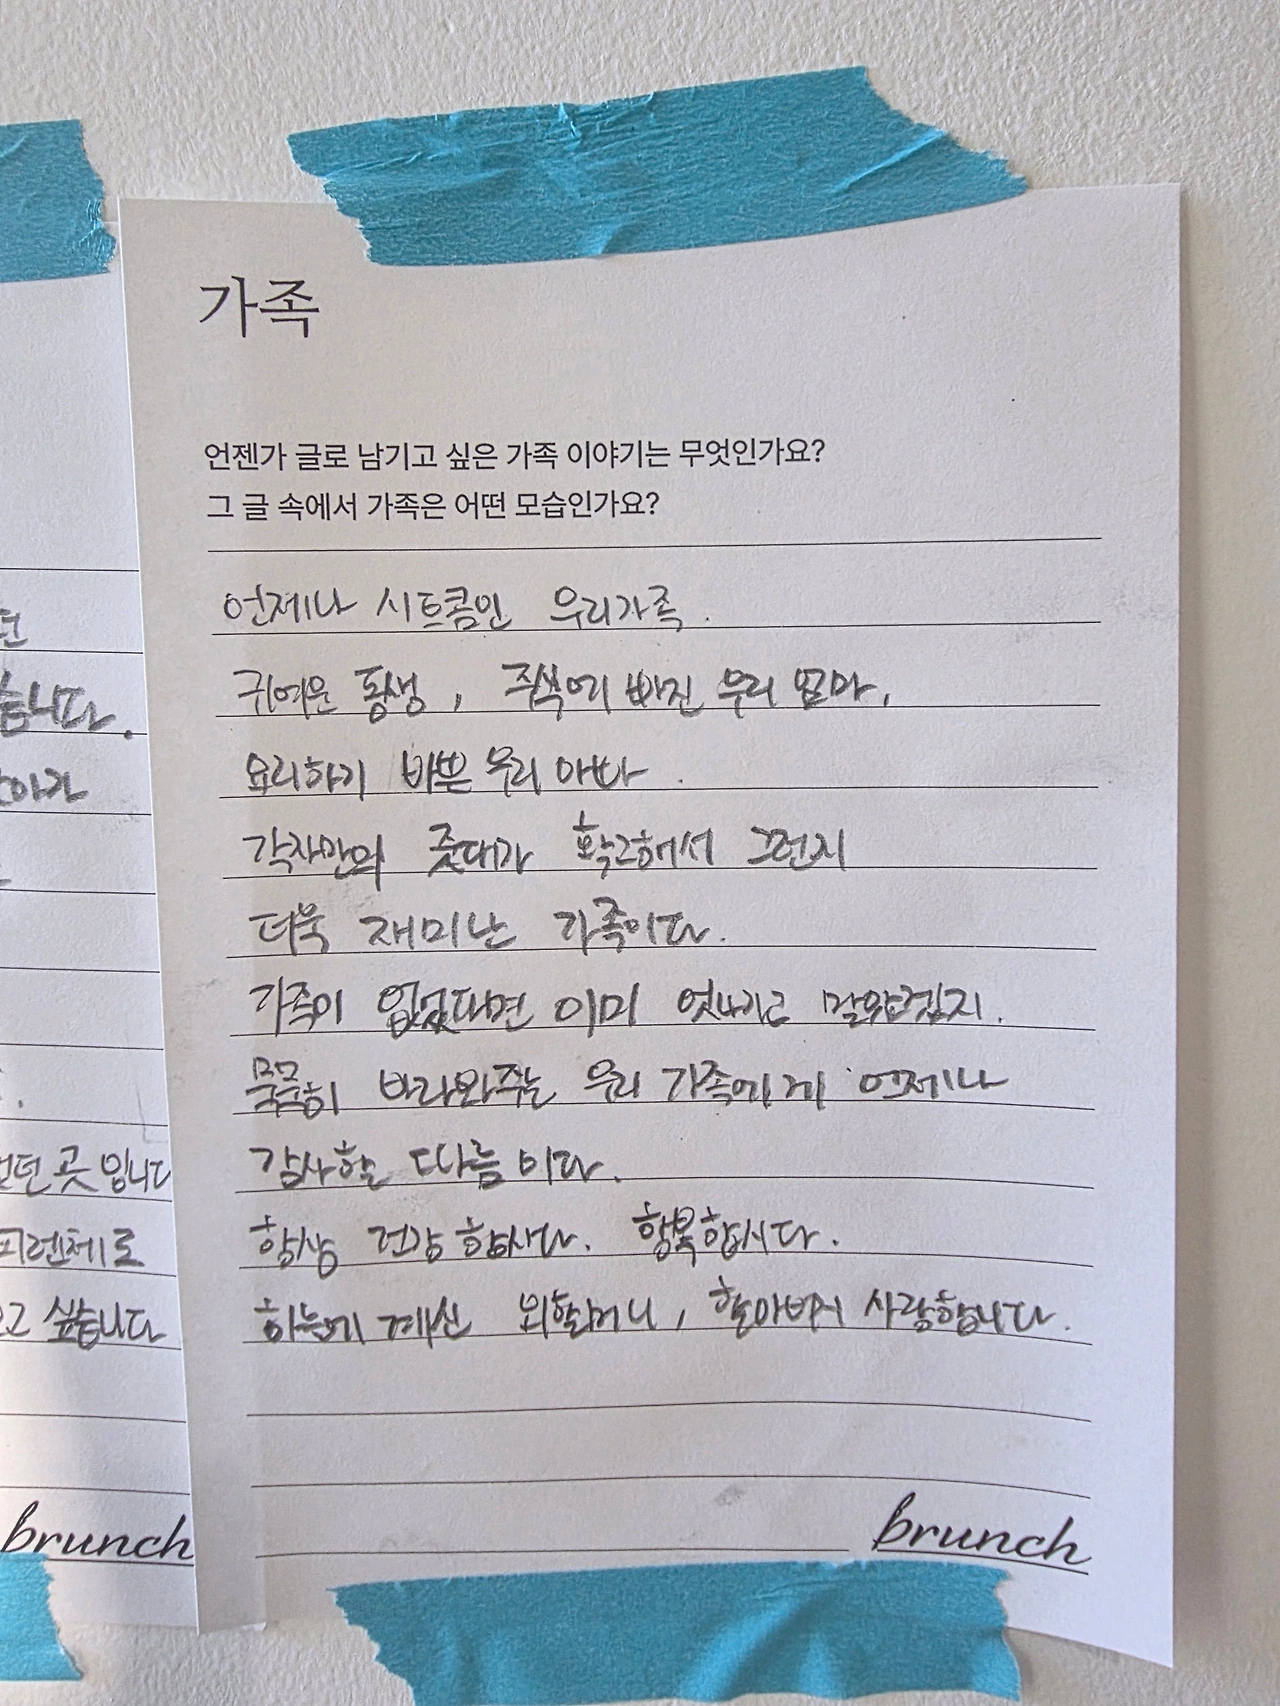 가족
언젠가 글로 남기고 싶은 가족 이야기는 무엇인가요?
그 글 속에서 가족은 어떤 모습인가요?
언제나 시트콤인 우리가족.
귀여운 동생, 주식에 빠진 우리 엄마,
요리하기 바쁜 우리 아빠.
각자만의 줏대가 확고해서 그런지
더욱 재미난 가족이다.
가족이 없었다면 이미 엇나가고 말았겠지.
묵묵히 바라봐주는 우리 가족에게 언제나
감사할 따름이다.
항상 건강합시다. 행복합시다.
하늘에 계신 외할머니, 할아버지 사랑합니다.
brunch
습니다.
던 곳 입니다
피렌체로
싶습니다
brunch